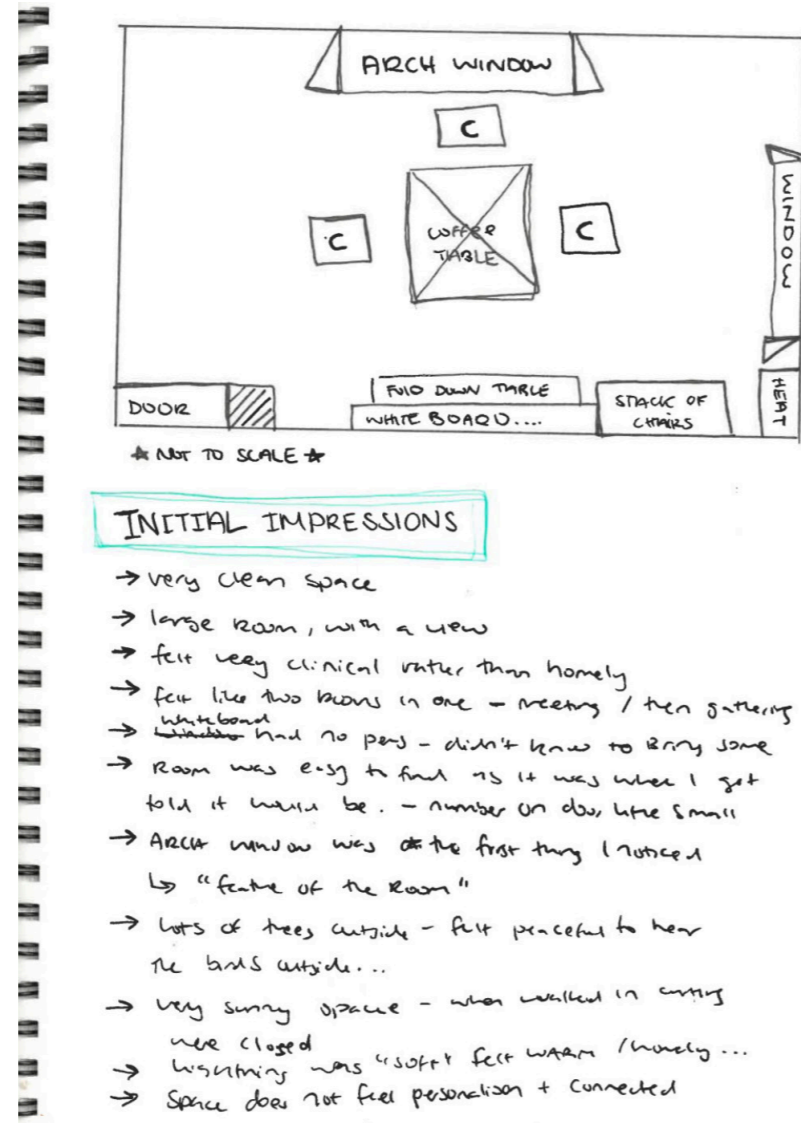 ARCH WINDOW
C
C
COFFEE
TABLE
C
WINDOW
DOOR
FOLD DOWN TABLE
WHITE BOARD....
STACK OF
CHAIRS
HEAT
☆ NOT TO SCALE ☆
INITIAL IMPRESSIONS
→ very clean space
→ large room, with a view
→ felt very clinical rather than homely
→ felt like two rooms in one - meeting / then gathering
whiteboard
→ had no pens - didn't know to bring some
→ Room was easy to find as it was where I got
told it would be. - number on door little small
→ ARCH window was the first thing I noticed
↳ "feature of the Room"
→ lots of trees outside - felt peaceful to hear
the birds outside...
→ very sunny space - when walked in
were closed
→ was "soft" felt WARM / homely ...
→ space does not feel + connected